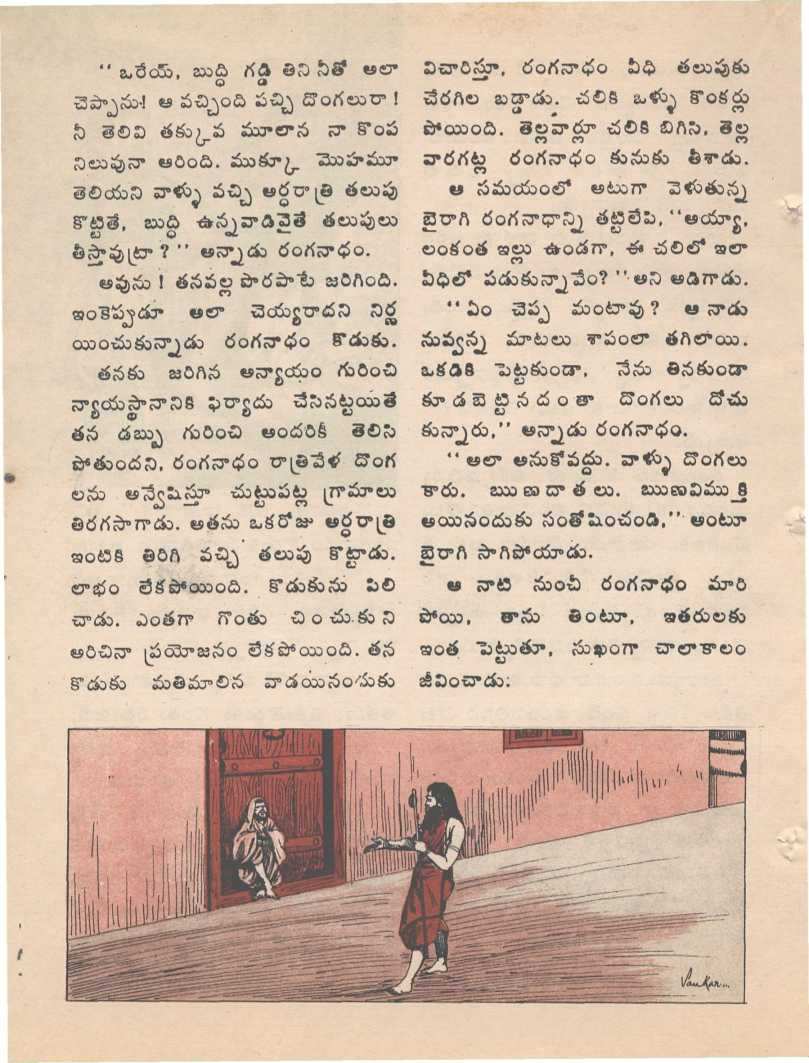 ‘‘ ఒరేయ్, బుద్ధి గడ్డి తిని నీతో అలా
చెప్పాను! ఆ వచ్చింది పచ్చి దొంగలురా !
నీ తెలివి తక్కువ మూలాన నా కొంప
నిలువునా ఆరింది. ముక్కూ మొహమూ
తెలియని వాళ్ళు వచ్చి అర్ధరాత్రి తలుపు
కొట్టితే, బుద్ధి ఉన్నవాడివైతే తలుపులు
తీస్తావుట్రా ? ’’ అన్నాడు రంగనాధం.
అవును ! తనవల్ల పొరపాటే జరిగింది.
ఇంకెప్పుడూ అలా చెయ్యరాదని నిర్ణ
యించుకున్నాడు రంగనాధం కొడుకు.
తనకు జరిగిన అన్యాయం గురించి
న్యాయస్థానానికి ఫిర్యాదు చేసినట్టయితే
తన డబ్బు గురించి అందరికీ తెలిసి
పోతుందని, రంగనాధం రాత్రివేళ దొంగ
లను అన్వేషిస్తూ చుట్టుపట్ల గ్రామాలు
తిరగసాగాడు. అతను ఒకరోజు అర్ధరాత్రి
ఇంటికి తిరిగి వచ్చి తలుపు కొట్టాడు.
లాభం లేకపోయింది. కొడుకును పిలి
చాడు. ఎంతగా గొంతు చించుకుని
అరిచినా ప్రయోజనం లేకపోయింది. తన
కొడుకు మతిమాలిన వాడయినందుకు
విచారిస్తూ, రంగనాధం వీధి తలుపుకు
చేరగిల బడ్డాడు. చలికి ఒళ్ళు కొంకర్లు
పోయింది. తెల్లవార్లూ చలికి బిగిసి, తెల్ల
వారగట్ల రంగనాధం కునుకు తీశాడు.
ఆ సమయంలో అటుగా వెళుతున్న
బైరాగి రంగనాధాన్ని తట్టిలేపి, ‘‘అయ్యా,
లంకంత ఇల్లు ఉండగా, ఈ చలిలో ఇలా
వీధిలో పడుకున్నావేం? ’’ అని అడిగాడు.
‘‘ ఏం చెప్ప మంటావు ? ఆ నాడు
నువ్వన్న మాటలు శాపంలా తగిలాయి.
ఒకడికి పెట్టకుండా, నేను తినకుండా
కూడబెట్టినదంతా దొంగలు దోచు
కున్నారు,’’ అన్నాడు రంగనాధం.
‘‘ అలా అనుకోవద్దు. వాళ్ళు దొంగలు
కారు. ఋణదాతలు. ఋణవిముక్తి
అయినందుకు సంతోషించండి,’’ అంటూ
బైరాగి సాగిపోయాడు.
ఆ నాటి నుంచీ రంగనాధం మారి
పోయి, తాను తింటూ, ఇతరులకు
ఇంత పెట్టుతూ, సుఖంగా చాలాకాలం
జీవించాడు.
Sankar...